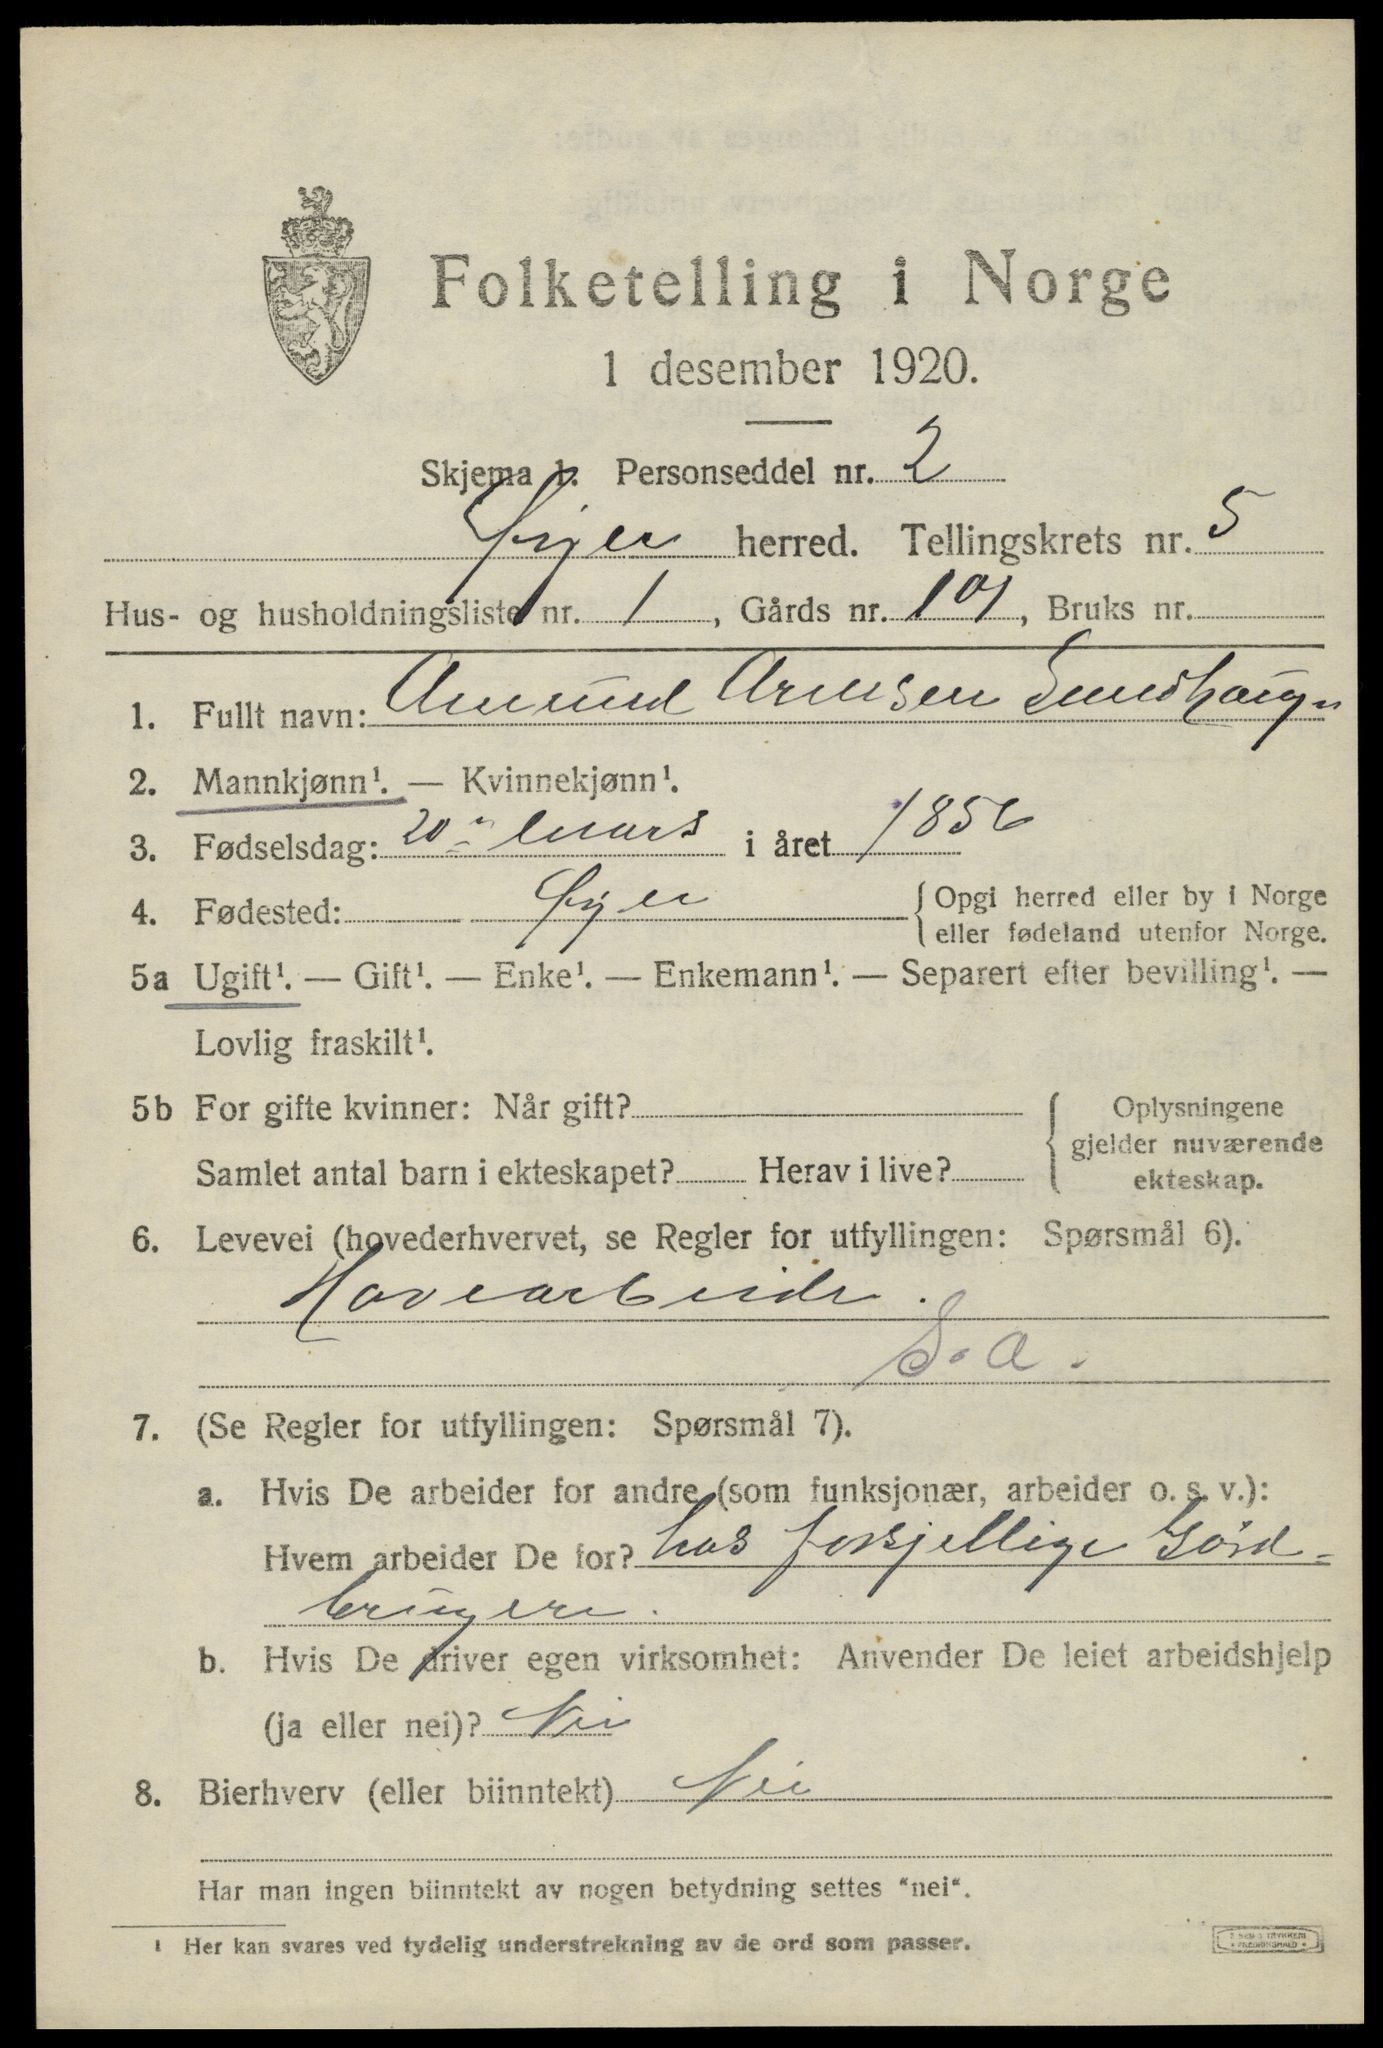 Folketelling i Norge
1 desember 1920.
Skjema 1. Personseddel nr. 2
Øyer herred. Tellingskrets nr. 5
Hus- og husholdningsliste nr. 1, Gårds nr. 101, Bruks nr.
1. Fullt navn: Amund Arnesen
2. Mannkjønn¹. — Kvinnekjønn¹.
3. Fødselsdag: 20de Mars i året 1856
4. Fødested: Øyer {Opgi herred eller by i Norge
eller fødeland utenfor Norge.
5a Ugift¹. — Gift¹. — Enke¹. — Enkemann¹. — Separert efter bevilling¹. —
Lovlig fraskilt¹.
5b For gifte kvinner: Når gift? { Oplysningene
gjelder nuværende
Samlet antal barn i ekteskapet? Herav i live? ekteskap.
6. Levevei (hovederhvervet, se Regler for utfyllingen: Spørsmål 6).
Havearbeide.
S.a.
7. (Se Regler for utfyllingen: Spørsmål 7).
a. Hvis De arbeider for andre (som funksjonær, arbeider o. s. v.):
Hvem arbeider De for? hos forsjellige Gård-
brugere.
b. Hvis De driver egen virksomhet: Anvender De leiet arbeidshjelp
(ja eller nei)? Nei
8. Bierhverv (eller biinntekt) Nei
Har man ingen biinntekt av nogen betydning settes "nei".
1 Her kan svares ved tydelig understrekning av de ord som passer.